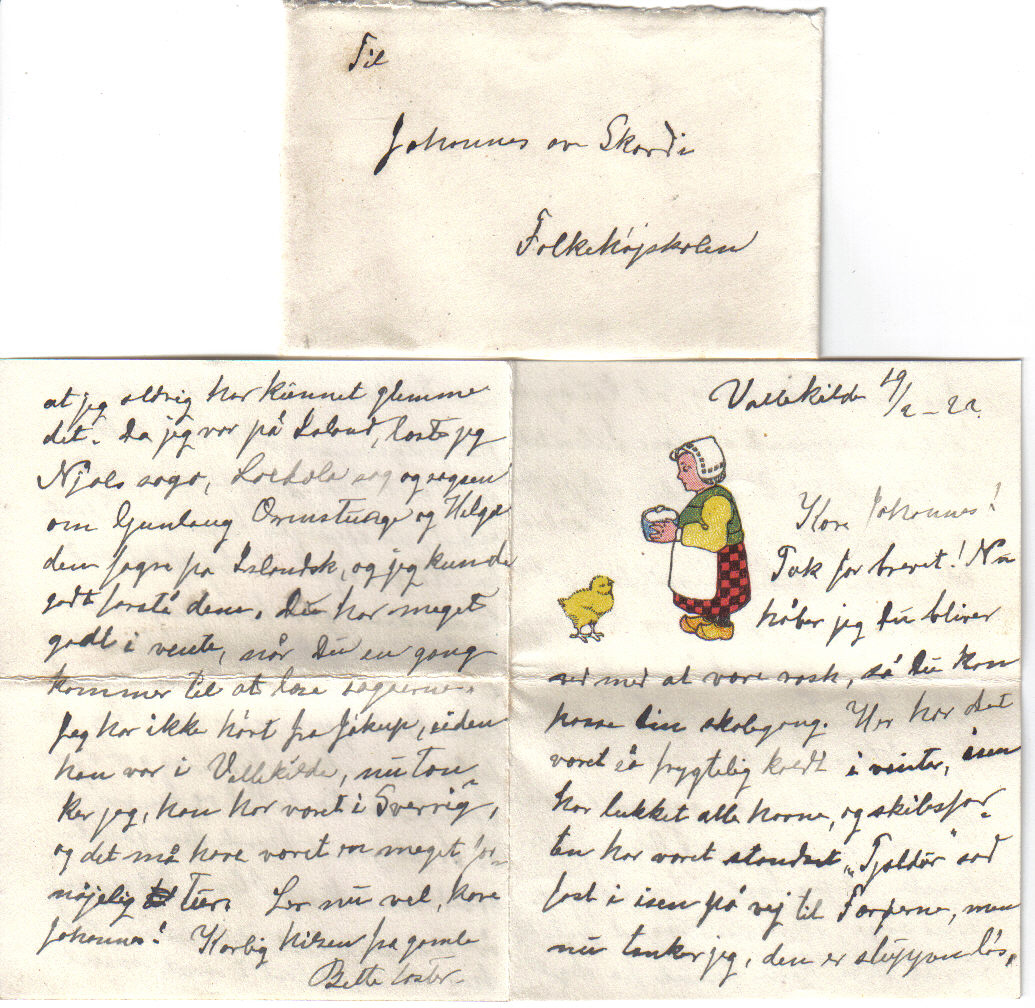 Til
Johannes av Skarði
Folkehøjskolen
Vallekilde 19/2 - 22.
Kære Johannes!
Tak for brevet! Nu
håber jeg Du bliver
ved med at være rask, så Du kan
passe din skolegang. Her har det
været så frygtelig koldt i vinter, isen
har lukket alle havne, og skibsfar-
ten har været standset „Tjaldur" sad
fast i isen på vej til Færøerne, men
nu tænker jeg, den er sluppen løs,
at jeg aldrig har kunnet glemme
det. Da jeg var på Island, læste jeg
Njals saga, Laxdøla sag og sagaen
om Gunlaug Ormstunge og Helga
den fagre på Islandsk, og jeg kunde
godt forstå dem. Du har meget
godt i vente, når Du en gang
kommer til at læse sagaerne.
Jeg har ikke hørt fra Jákup, siden
han var i Vallekilde, nu tæn-
ker jeg, han har været i Sverrig,
og det må have været en meget for-
nøjelig tur. Lev nu vel, kære
Johannes! Kærlig hilsen fra gamle